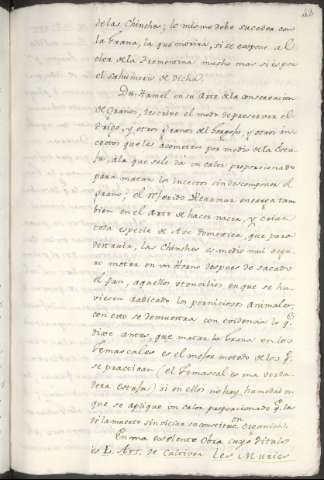 de las Chinchas; lo mismo debe suceder con
la Grana, la que morirá, si se expone al
olor de la Trementina mucho mas si es por
el sahumerio de dicha.
Du-Hamel en su Arte de la conservacion
de Granos, describe el modo de preservar el
trigo, y otros granos del Gorgojo, y otros in-
sectos que los acometen por medio de la Estu-
fa, a la que se le dá un calor proporcionado
para matar los insectos sin descomponer el
grano; el referido Reaumur enseña tam
bien en el Arte de hacer nacer, y criar
toda especie de Ave domestica, que para
destruir, las Chinches es medio mui segu-
ro meter en un Horno despues de sacado
el pan, aquellos utencilios en que se hu-
viesen radicado los perniciosos animales;
con esto se demuestra con evidencia lo q.e
dixe antes, que matar la Grana en los
Temascales es el mejor metodo de los q.e
se practican (el Temascal es una verda-
dera estufa) si en ellos no hay humedad en
que se aplique un calor proporcionado q.e la
dé la muerte sin viciar su constitucion organica.
En una excelente Obra cuyo titulo
es L. Art. de Cultiver Les Muries